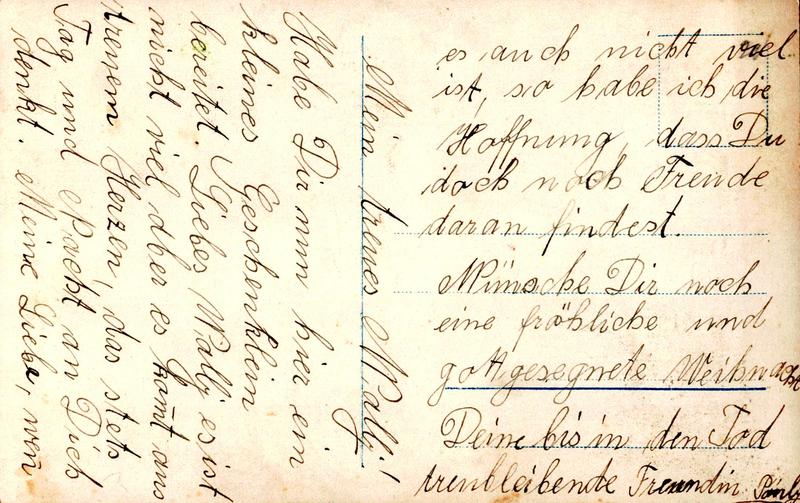 Mein treues Wally!
Habe Dir nun hier ein
kleines Geschenklein
bereitet. Liebes Wally es ist
nicht viel aber es komt aus
treuem Herzen, das stets
Tag und Nacht an Dich
denkt. Meine Liebe, wen̄
es auch nicht viel
ist, so habe ich die
Hoffnung, dass Du
doch noch Freude
daran findest.
Wünsche Dir noch
eine fröhliche und
gottgesegnete Weihnacht
Deine bis in den Tod
treubleibende Freundin